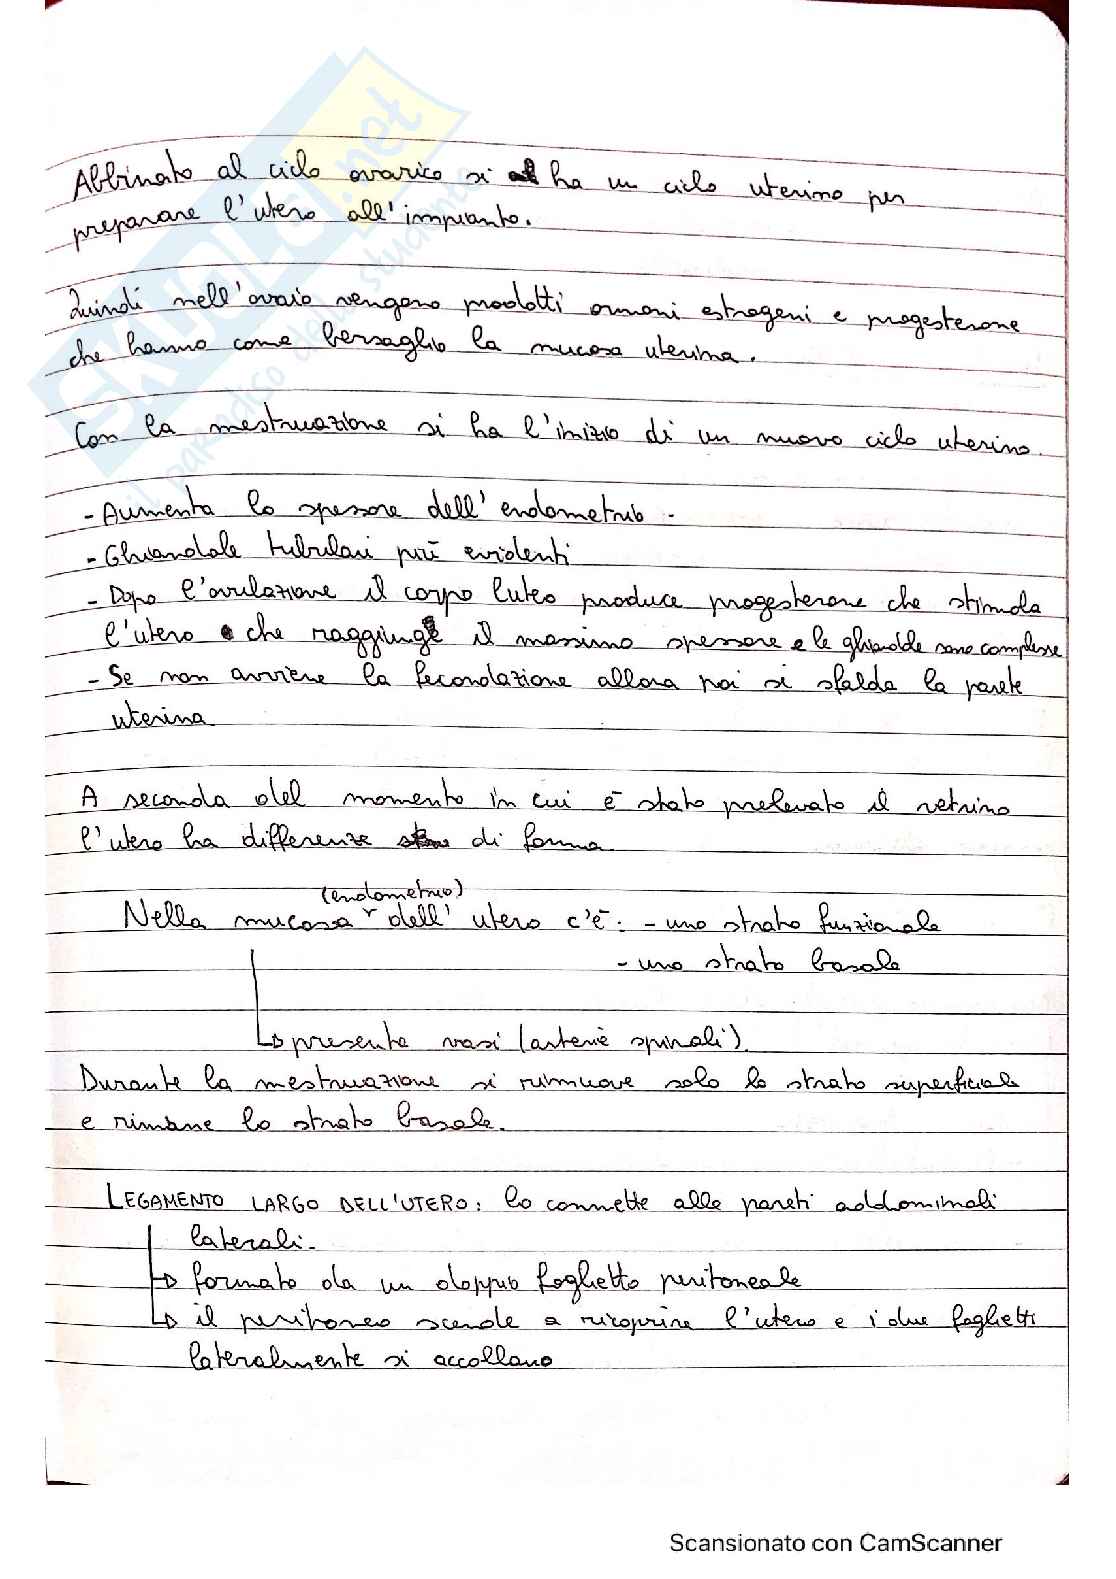 Abbinato al ciclo ovarico si ha un ciclo uterino per
preparare l'utero all'impianto.
Quindi nell'ovaio vengono prodotti ormoni estrogeni e progesterone
che hanno come bersaglio la mucosa uterina.
Con la mestruazione si ha l'inizio di un nuovo ciclo uterino.
- Aumenta lo spessore dell'endometrio -
- Ghiandole tubulari più evidenti
- Dopo l'ovulazione il corpo luteo produce progesterone che stimola
l'utero che raggiunge il massimo spessore e le ghiandole sono complesse
- Se non avviene la fecondazione allora poi si sfalda la parete
uterina
A seconda del momento in cui è stato prelevato il vetrino
l'utero ha differenze di forma
(endometrio)
Nella mucosa dell'utero c'è: - uno strato funzionale
- uno strato basale
presente vasi (arterie spirali)
Durante la mestruazione si rimuove solo lo strato superficiale
e rimane lo strato basale.
LEGAMENTO LARGO DELL'UTERO: lo connette alle pareti addominali
laterali.
formato da un doppio foglietto peritoneale
il peritoneo scende a ricoprire l'utero e i due foglietti
lateralmente si accollano
SKUOLA.net
il paradiso dello studente
Scansionato con CamScanner